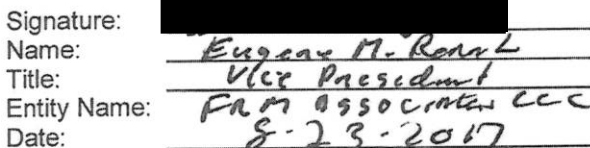 Signature:
Name: Eugene M.
Title: Vice President
Entity Name: FRM Associates LLC
Date: 8-23-2017